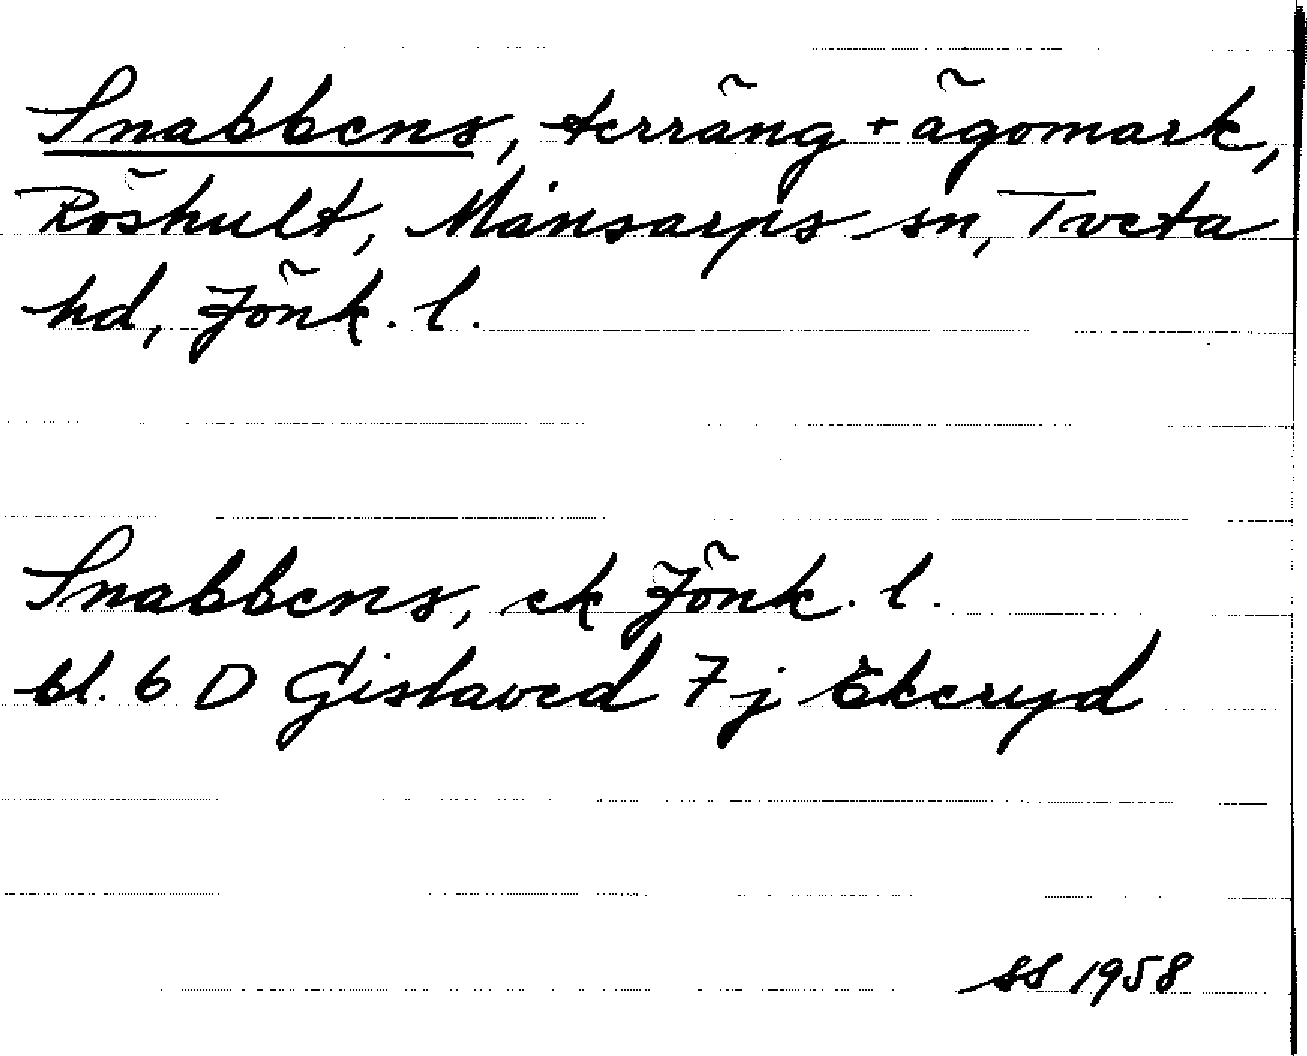 Snabbens, terräng + ägomark,
Röshult, Månsarps sn, Tveta
hd, Jönk. l.
Snabbens, ek Jönk. l.
bl. 6 D Gislaved 7 j Ekeryd
SS 1958